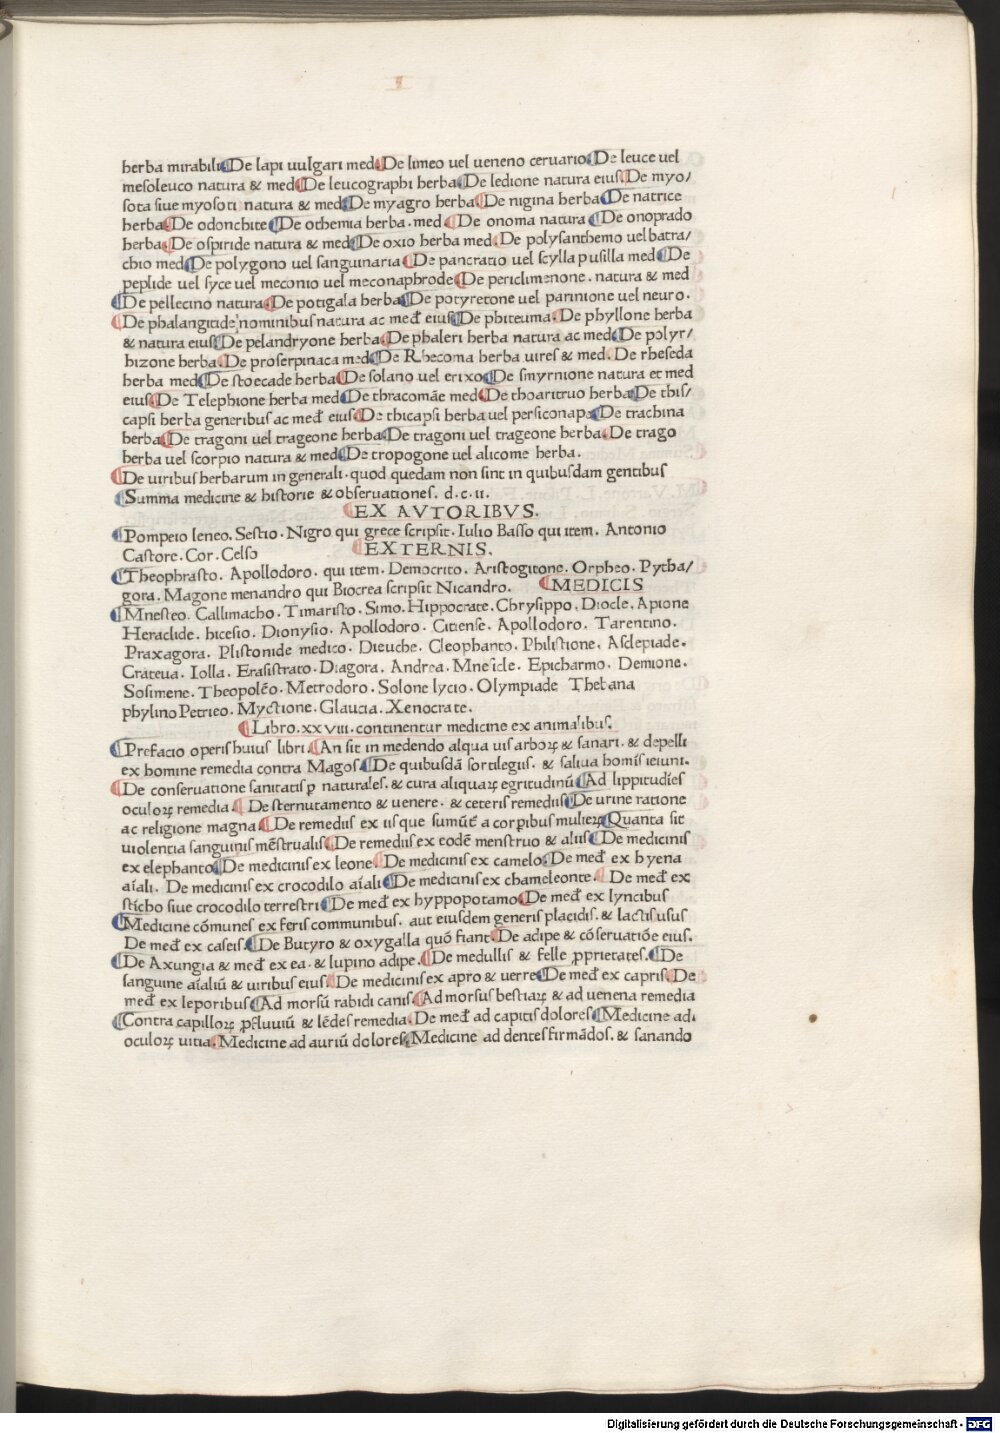 I
herba mirabili De lapi uulgari med De limeo uel ueneno ceruario De leuce uel
mesoleuco natura & med De leucographi herba De ledione natura eius De myo/
sota siue myosoti natura & med De myagro herba De nigina herba De natrice
herba De odonchite De othemia herba. med De onoma natura De onoprado
herba De ospiride natura & med De oxio herba med De polysanthemo uel batra/
chio med De polygono uel sanguinaria De pancratio uel scylla pusilla med De
peplide uel syce uel meconio uel meconaphrode De periclimenone. natura & med
De pellecino natura De potigala herba De potyretone uel parinione uel neuro.
De phalangitide nominibus natura ac med̄ eius De phiteuma. De phyllone herba
& natura eius De pelandryone herba De phaleri herba natura ac med De polyr/
hizone herba De proserpinaca med De Rhecoma herba uires & med. De rheseda
herba med De stoecade herba De solano uel erixo De smyrnione natura et med
eius De Telephione herba med De thracomāe med De thoaritruo herba De this/
capsi herba generibus ac med̄ eius De thicapsi herba uel persiconapa De trachina
herba De tragoni uel trageone herba De tragoni uel trageone herba De trago
herba uel scorpio natura & med De tropogone uel alicome herba.
De uiribus herbarum in generali. quod quedam non sint in quibusdam gentibus
Summa medicine & historie & obseruationes. d.c.ii.
EX AVTORIBVS.
Pompeio leneo. Sestio. Nigro qui grece scripsit. Iulio Basso qui item. Antonio
Castore. Cor. Celso EXTERNIS.
Theophrasto. Apollodoro. qui item. Democrito. Aristogitone. Orpheo. Pytha/
gora. Magone menandro qui Biocrea scripsit Nicandro. MEDICIS
Mnesteo. Callimacho. Timaristo. Simo. Hippocrate. Chrysippo. Diocle. Apione
Heraclide. hicesio. Dionysio. Apollodoro. Citiense. Apollodoro. Tarentino.
Praxagora. Plistonide medico. Dieuche. Cleophanto. Philistione. Asclepiade.
Crateua. Iolla. Erasistrato. Diagora. Andrea. Mneside. Epicharmo. Demione.
Sosimene. Theopolēo. Metrodoro. Solone lycio. Olympiade Thebana
phylino Petrieo. Myctione. Glaucia. Xenocrate.
Libro. xxviii. continentur medicine ex animalibus.
Prefacio operis huius libri. An sit in medendo alqua uis arboꝝ & sanari. & depelli
ex homine remedia contra Magos De quibusdā sortilegiis. & saliua homis ieiuni.
De conseruatione sanitatis ꝑ naturales. & cura aliquaꝝ egritudinū Ad lippitudies
oculoꝝ remedia. De sternutamento & uenere. & ceteris remediis De urine ratione
ac religione magna De remediis ex iisque sumūt̄ a corpibus mulieꝝ Quanta sit
uiolentia sanguinis mēstrualis De remediis ex eodē menstruo & aliis De medicinis
ex elephanto De medicinis ex leone De medicinis ex camelo. De med̄ ex hyena
aīali. De medicinis ex crocodilo aīali De medicinis ex chameleonte. De med̄ ex
sticho siue crocodilo terrestri De med̄ ex hyppopotamo De med̄ ex lyncibus
Medicine cōmunes ex feris communibus. aut eiusdem generis placidis. & lactis usus
De med̄ ex caseis De Butyro & oxygalla quō fiant De adipe & cōseruatiōe eius.
De Axungia & med̄ ex ea. & lupino adipe. De medullis & felle ꝓprietates. De
sanguine aīaliū & uiribus eius. De medicinis ex apro & uerre De med̄ ex capris De
med̄ ex leporibus Ad morsū rabidi canis Ad morsus bestiaꝝ & ad uenena remedia
Contra capilloꝝ ꝓfluuiū & lēdes remedia. De med̄ ad capitis dolores Medicine ad
oculoꝝ uitia. Medicine ad auriū dolores Medicine ad dentes firmādos. & sanando
Digitalisierung gefördert durch die Deutsche Forschungsgemeinschaft - DFG